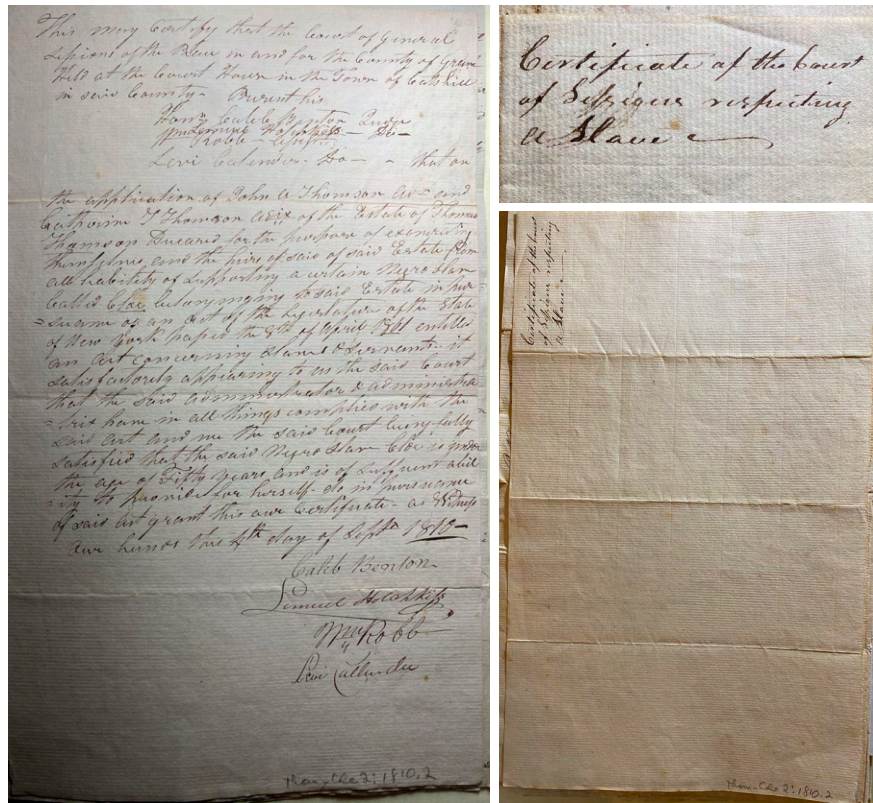 This may Certify that the Court of General
Sessions of the Peace in and for the County of Green
Held at the Court House in the Town of Catskill
in said County - Present his
Honr Caleb Benton Judge
Wm Robb
Levi Calender - Do - - that on
the application of John A Thomson adr and
Catharine T Thomson adrix of the Estate of Thomas
Thomson Deceased for the purpose of exonerating
themselves and the heirs of said of said Estate from
all liability of supporting a certain Negro Slave
Called Cloe belonginging to said Estate in pur-
=suance of an Act of the Legislature of the State
of New York passed the 8th of April 1801 entitled
an Act concerning slaves & servants - it
satisfactorily appearing to us the said Court
that the said administrator & administra
=trix have in all things complied with the
said act and we the said Court being fully
satisfied that the said Negro Slave Cloe is under
the age of Fifty years and is of sufficient abil
ity to provide for herself - do in pursuance
of said act grant this our Certificate - as Witness
our hands this 4th day of Sept 1810 -
Caleb Benton
Lemuel Hotchkiss
Wm Robb
Levi Callender
Thom-Cloe 2: 1810.2
Certificate of the Court
of Sessions respecting
a Slave
Certificate of the Court
of Sessions respecting
a Slave
Thom-Cloe 2: 1810.2